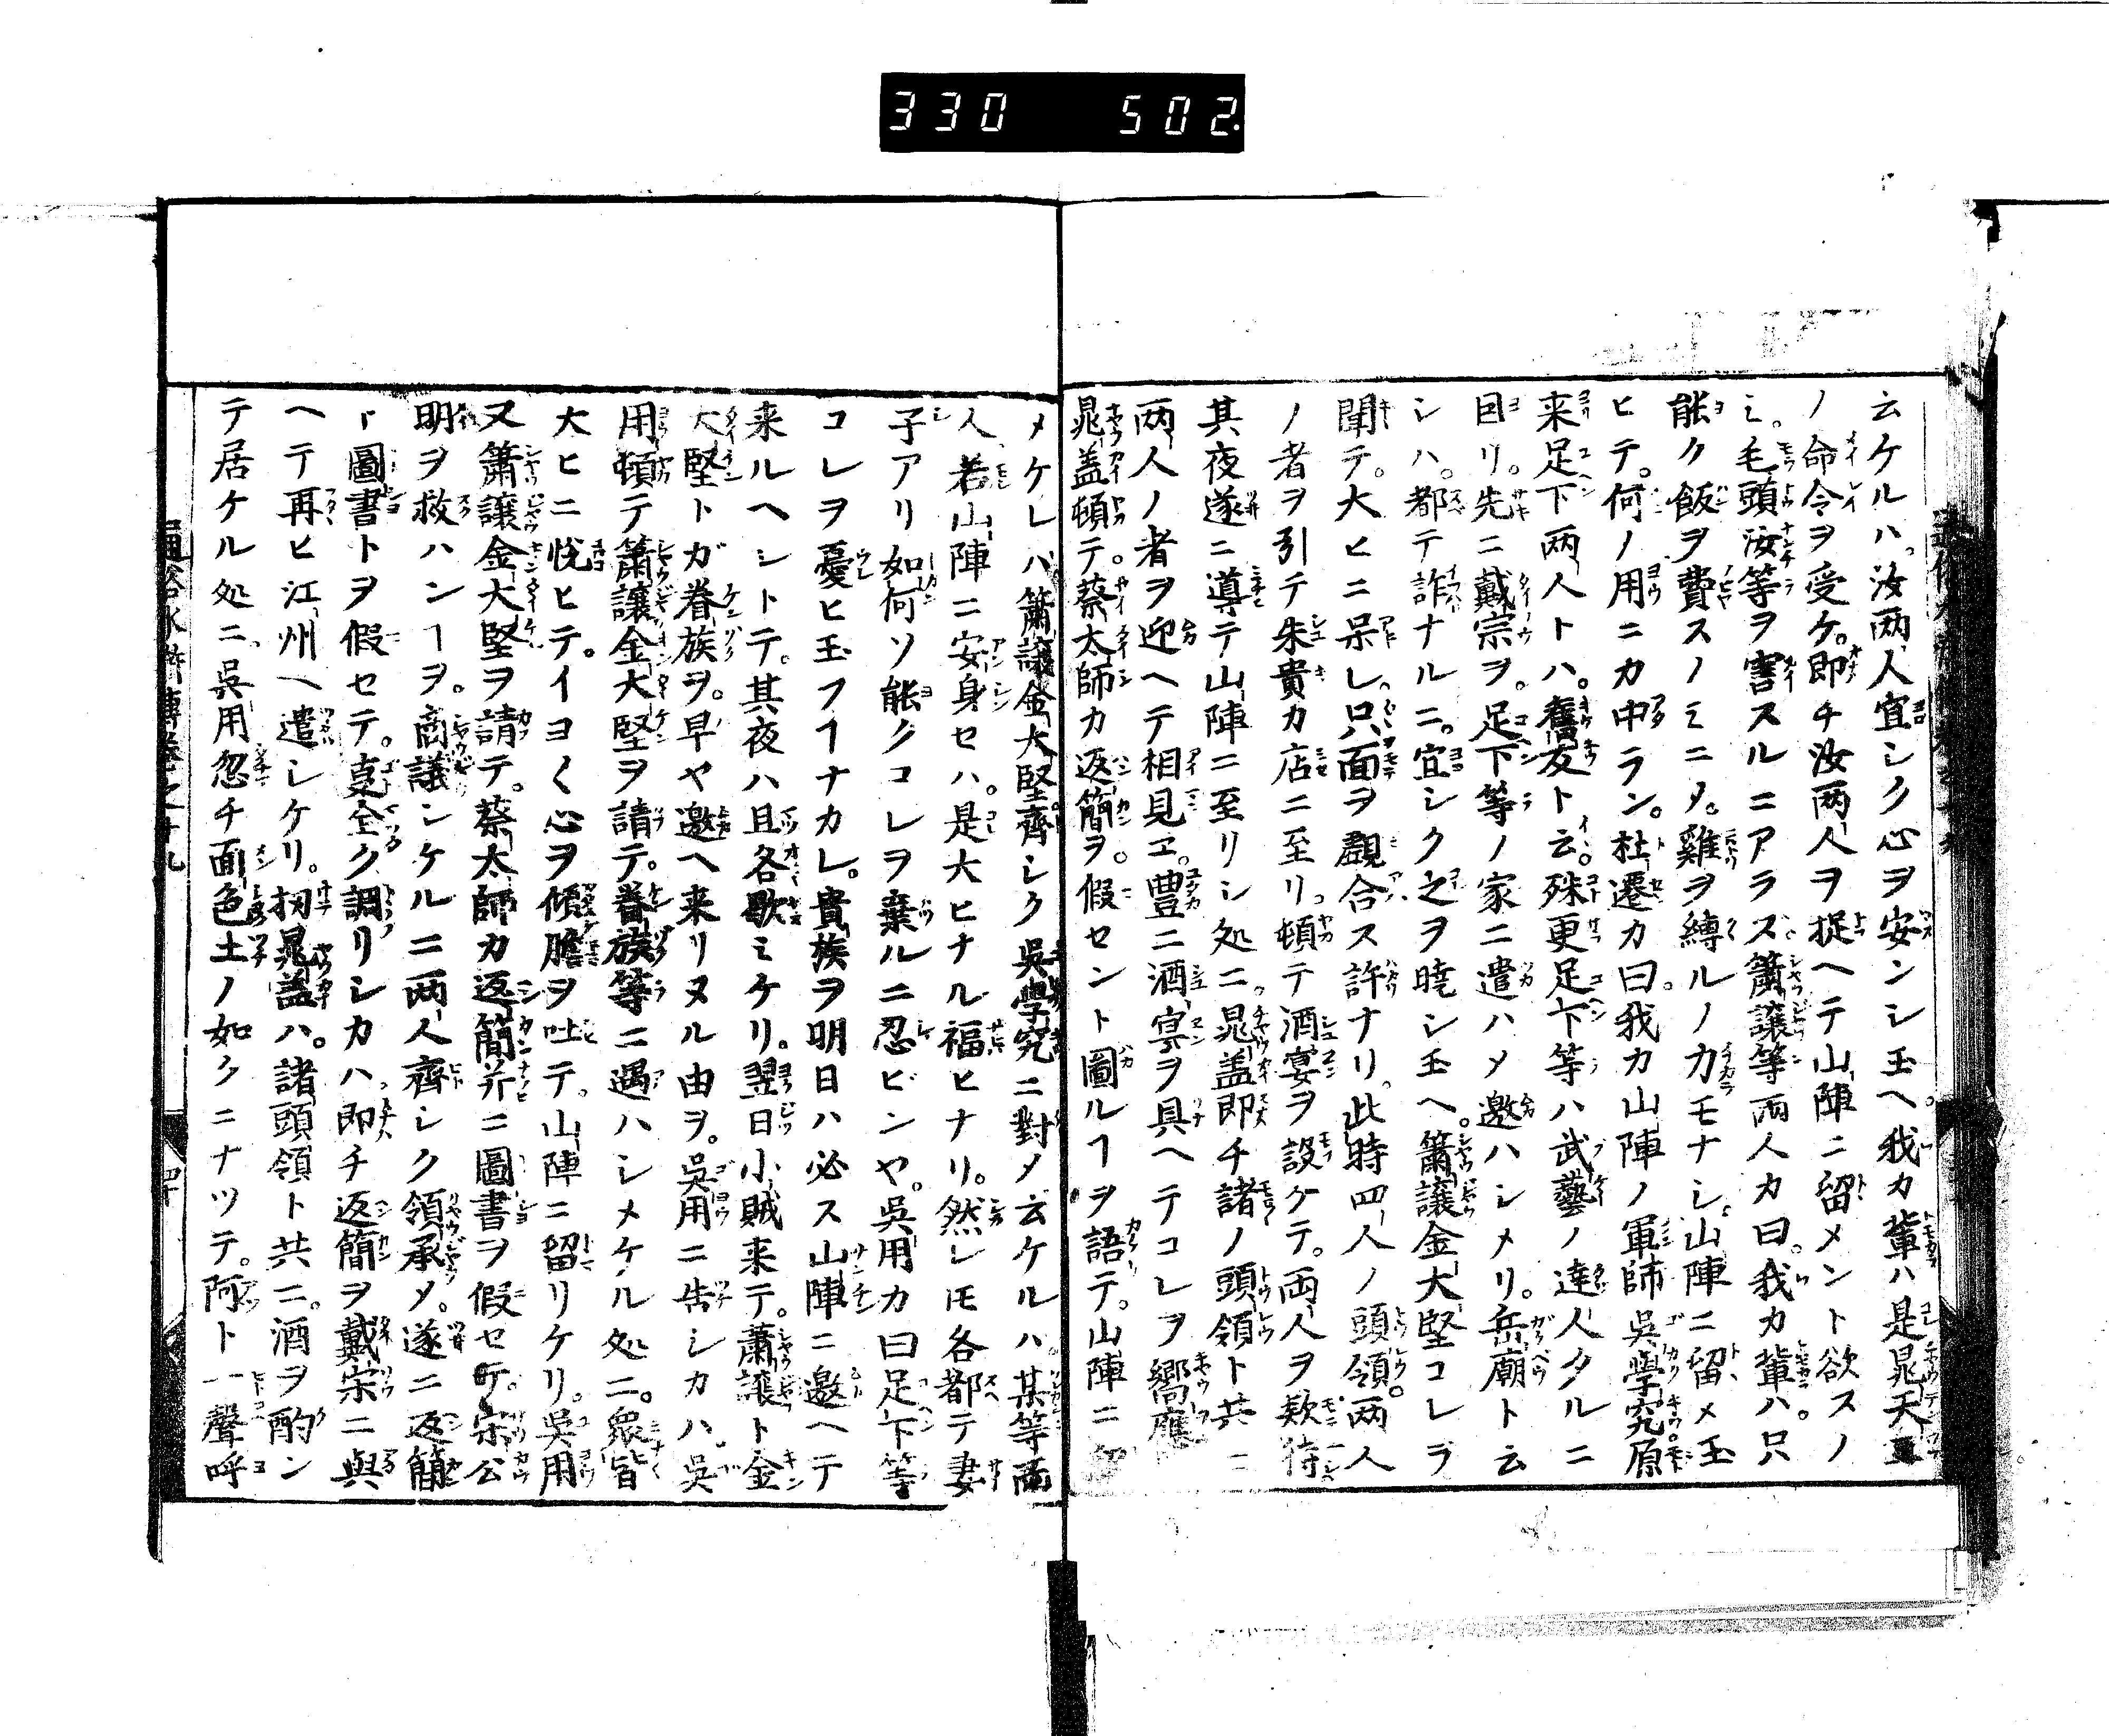 330 502.
云ケルハ。汝两人宜シク心ヲ安ンシ玉ヘ我カ輩ハ是晁天王
ノ命令ヲ受ケ。即チ汝两人ヲ捉ヘテ山陣ニ留メント欲スノ
ミ。毛頭汝等ヲ害スルニアラス簫譲等两人カ曰。我カ輩ハ。只
能ク飯ヲ費スノミニメ。雞ヲ縛ルノ力モナシ山陣ニ留メ玉
ヒテ。何ノ用ニカ中ラン。杜遷カ曰。我カ山陣ノ軍師吳學究原
来足下两人トハ。舊友ト云。殊更足下等ハ武藝ノ達人タルニ
因リ。先ニ戴宗ヲ。足下等ノ家ニ遣ハメ邀ハシメリ。岳廟ト云
シハ。都テ詐ナルニ。宜シク之ヲ暁シ玉ヘ。簫譲金大堅コレヲ
聞テ。大ヒニ呆レ。只面ヲ覷合ス許ナリ。此時四人ノ頭領。两人
ノ者ヲ引テ朱貴カ店ニ至リ。頓テ酒宴ヲ設ケテ。両人ヲ欵待
其夜遂ニ導テ山陣ニ至リシ処ニ。晁盖即チ諸ノ頭領ト共ニ
两人ノ者ヲ迎ヘテ相見ヱ。豊ニ酒宴ヲ具ヘテコレヲ饗應
晁盖頓テ。蔡太師カ返簡ヲ。假セント圖ルヿヲ語テ。山陣ニ留
メケレバ簫譲金大堅齊シク吳學究ニ對メ云ケルハ。某等両
人若山陣ニ安身セハ。是大ヒナル福ヒナリ。然レモ各都テ妻
子アリ如何ソ能クコレヲ棄ルニ忍ビンヤ。吳用カ曰足下等
コレヲ憂ヒ玉フヿナカレ。貴族ヲ明日ハ必ス山陣ニ邀ヘテ
来ルヘシトテ。其夜ハ且各歇ミケリ。翌日小賊来テ。蕭譲ト金
大堅トガ眷族ヲ。早ヤ邀ヘ来リヌル由ヲ。吳用ニ告シカハ。吳
用頓テ簫譲金大堅ヲ請テ。眷族等ニ遇ハシメケル処ニ。衆皆
大ヒニ悦ヒテ。イヨ〱心ヲ傾膽ヲ吐テ。山陣ニ留リケリ。吳用
又簫譲金大堅ヲ請テ。蔡太師カ返簡并ニ圖書ヲ假セ𪜈。宗公
明ヲ救ハンヿヲ。商議シケルニ两人齊シク領承メ。遂ニ返簡
ト圖書トヲ假セテ。㐂全ク調リシカハ。即チ返簡ヲ戴宗ニ與
ヘテ再ヒ江州ヘ遣シケリ。扨晁盖ハ。諸頭領ト共ニ。酒ヲ酌ン
テ居ケル処ニ。吳用忽チ面色土ノ如クニナツテ。阿ト一聲呼
通俗水滸傳卷之十九